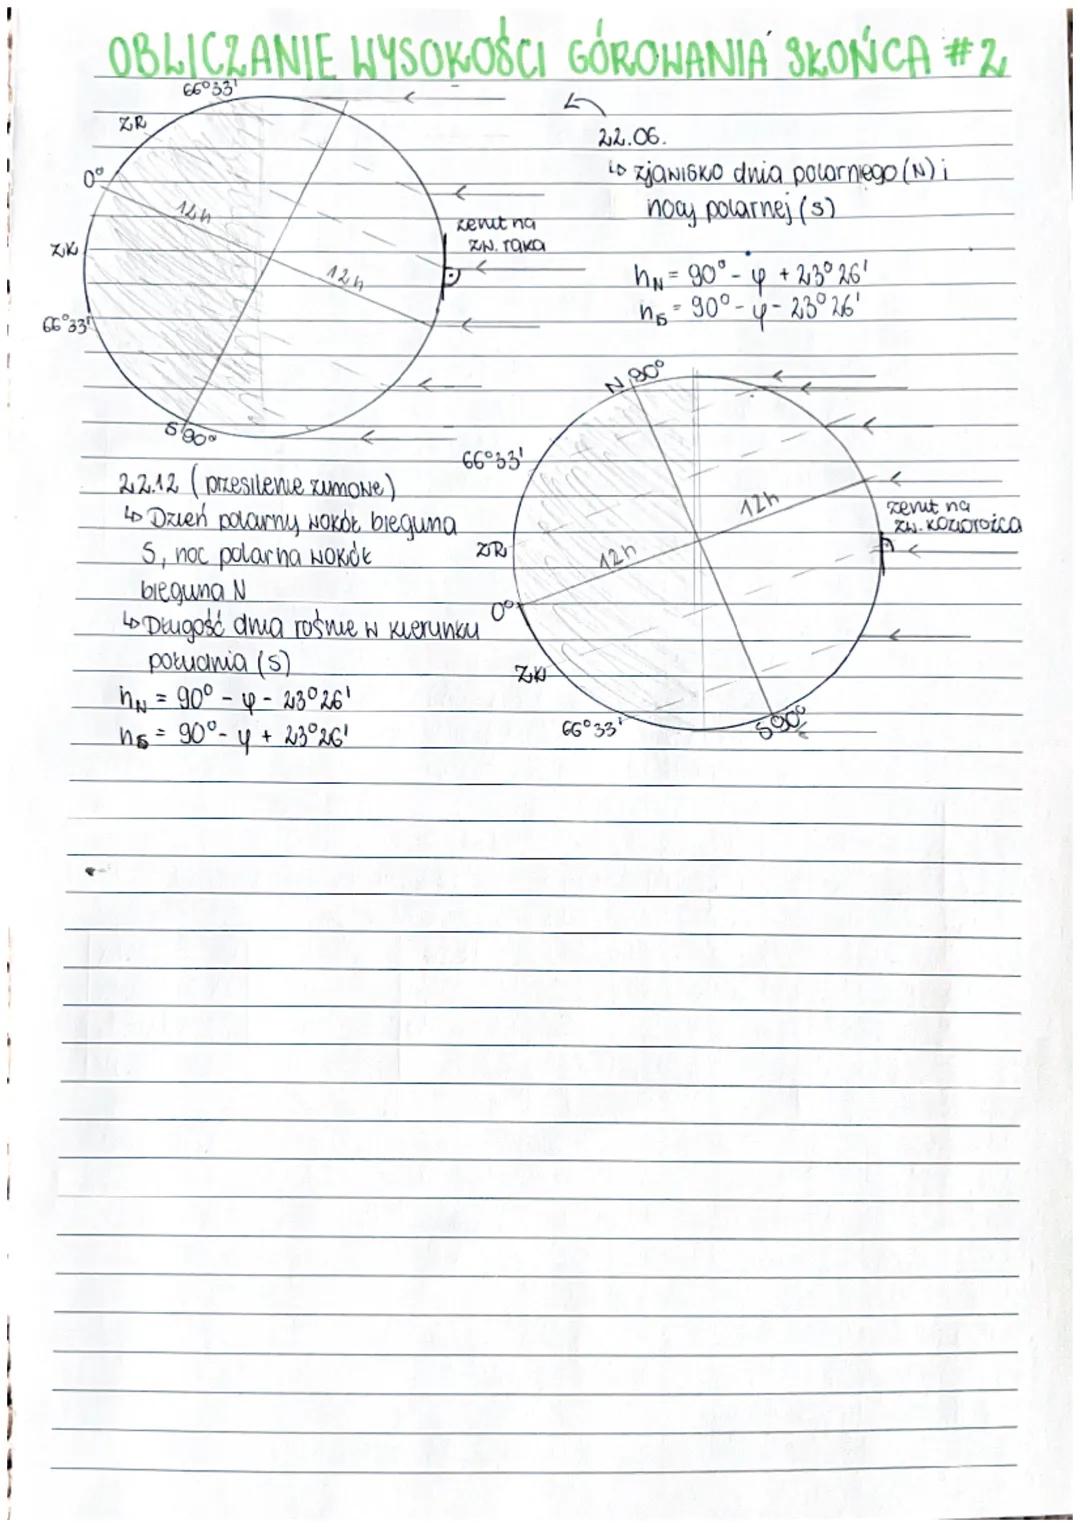 OBLICZANIE WYSOKOŚCI GÓROWANIA SŁOŃCA #2
66°33'
ZR
0°
12h
ZK
12h
66°33'
S 90°
zenit na
zw. raka
22.06.
↳ zjawisko dnia polarnego (N) i
nocy polarnej (S)
hN = 90° - φ + 23°26'
hS = 90° - φ - 23°26'
22.12 (przesilenie zimowe)
↳ Dzień polarny wokół bieguna
S, noc polarna wokół
bieguna N
↳ Długość dnia rośnie w kierunku
południa (S)
hN = 90° - φ - 23°26'
hS = 90° - φ + 23°26'
N 90°
66°33'
ZR
12h
12h
0°
ZK
66°33'
S 90°
zenit na
zw. koziorożca